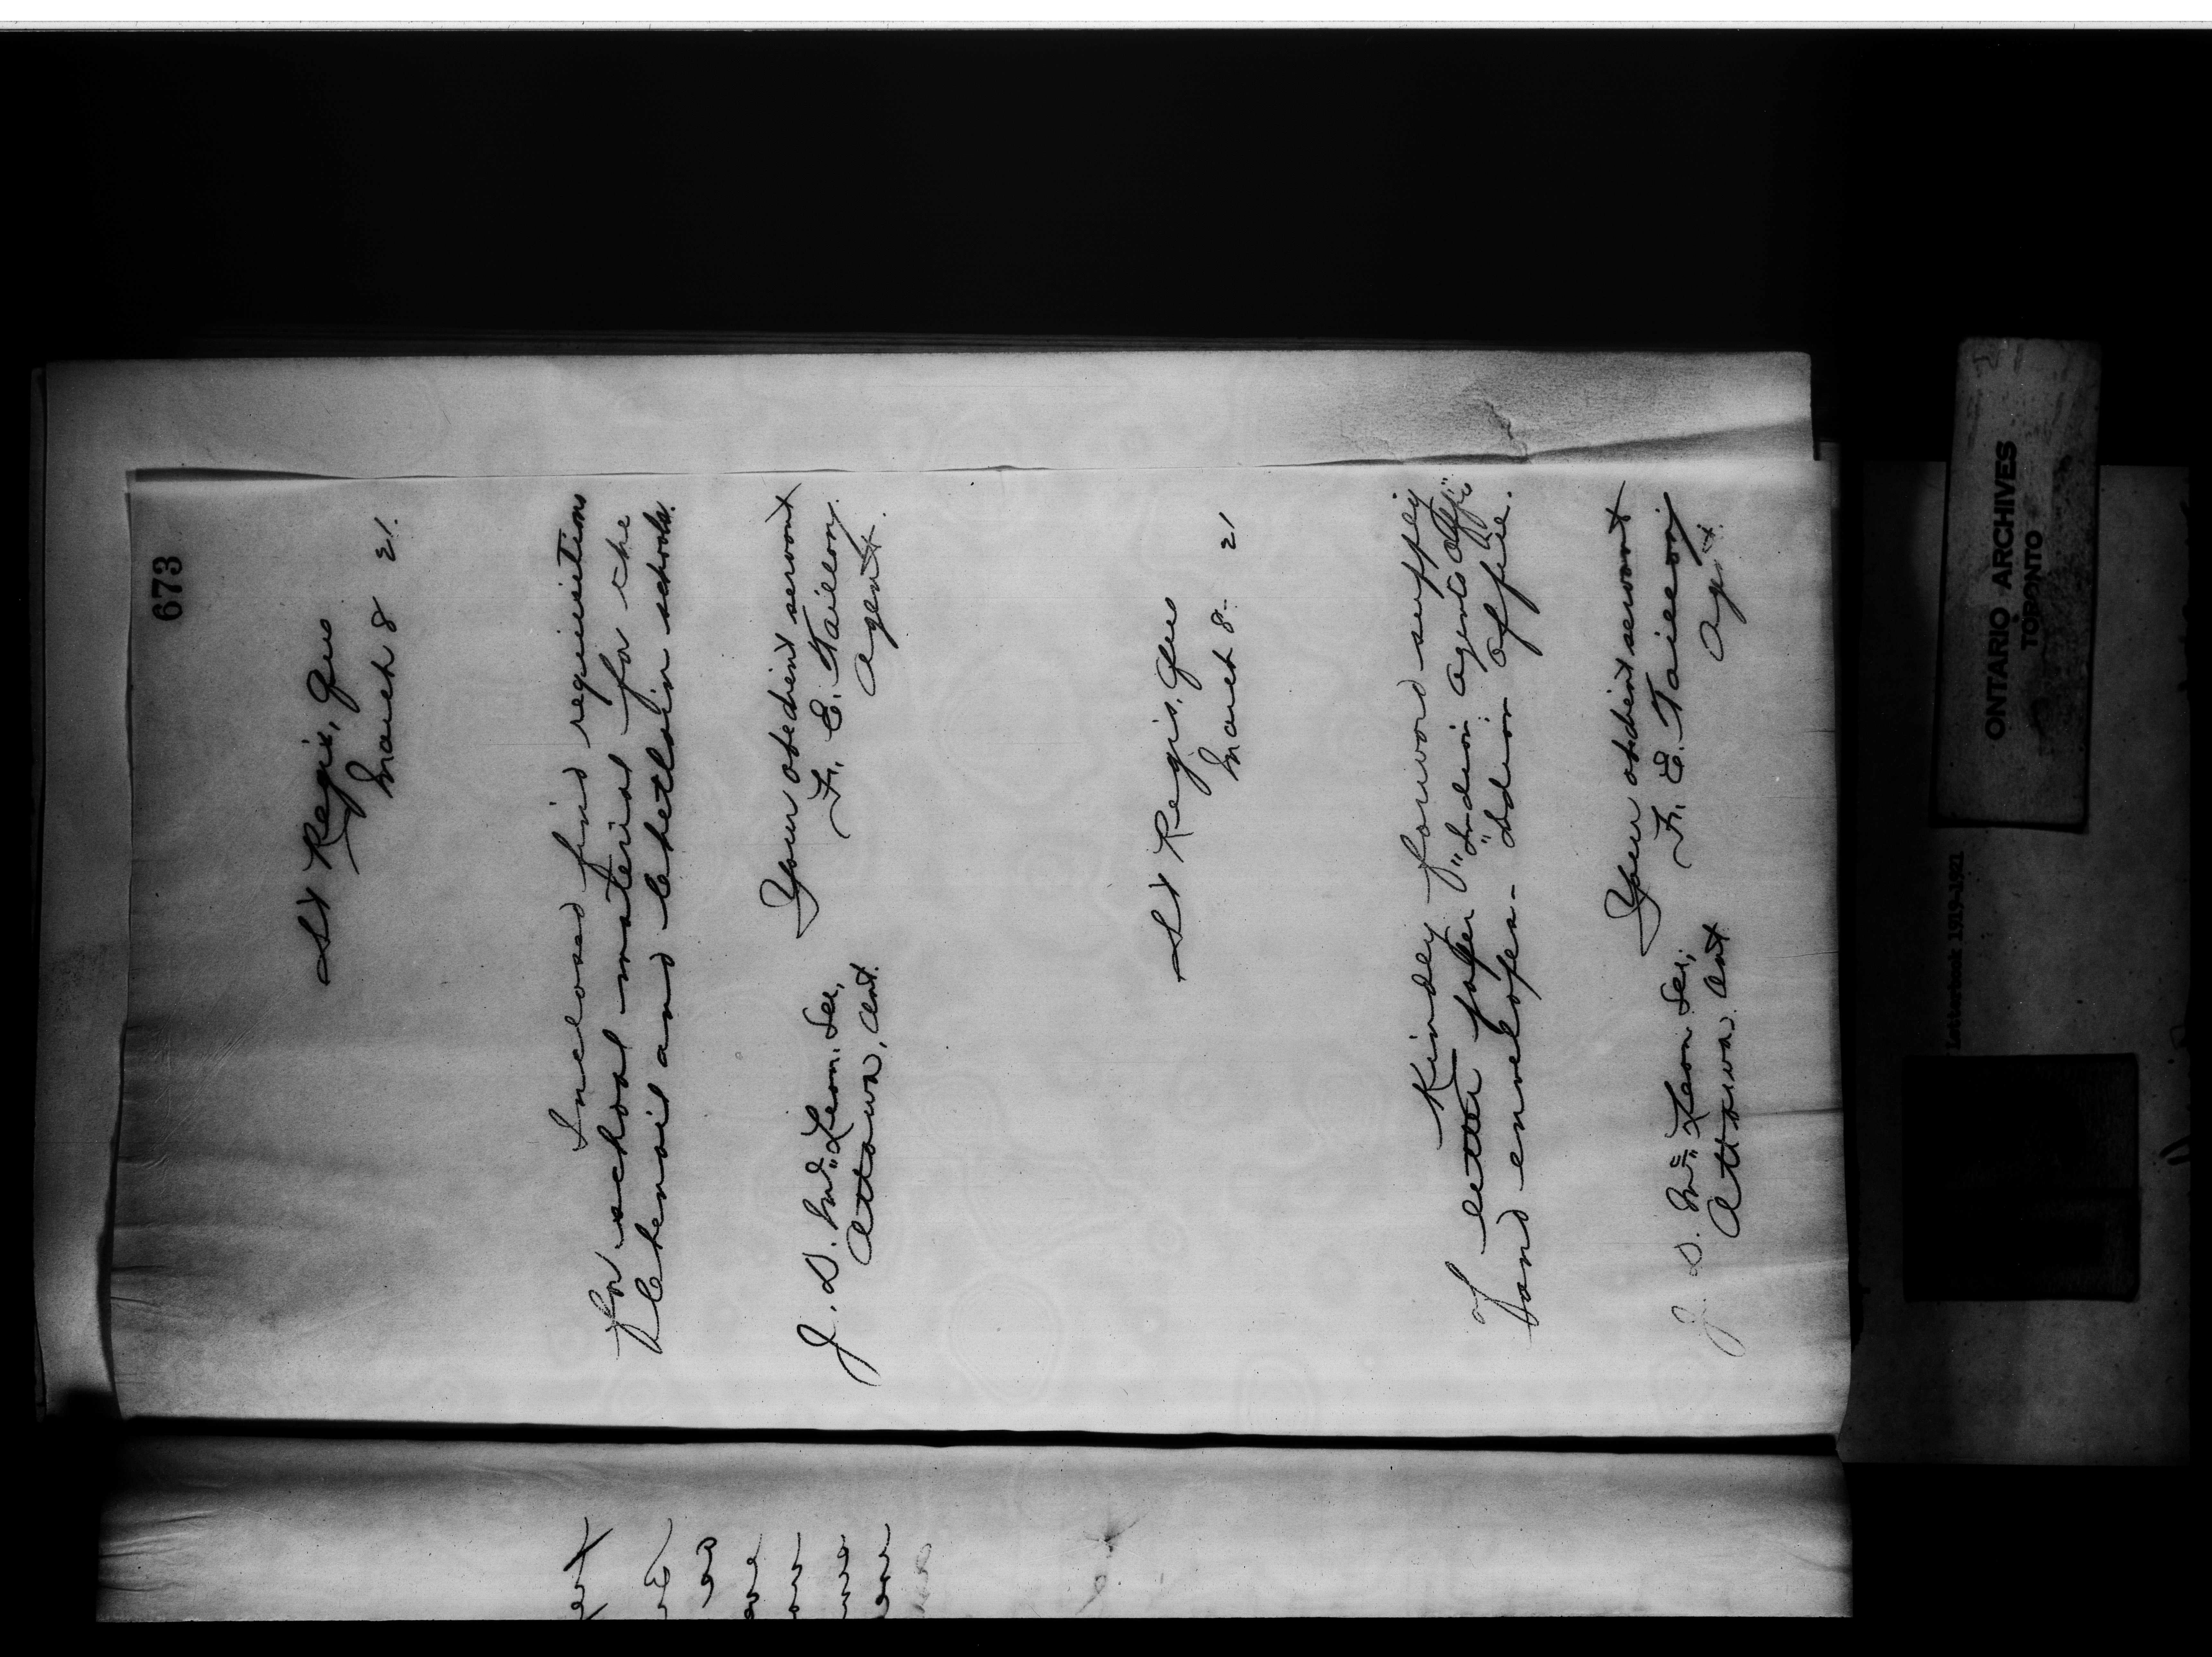 673
St Regis, Que
March 8 21.
Inclosed find requisition
for school material for the
Chenail and Chetlain schools.
Your obedient servant
F. E. Taillon,
Agent.
J. D. McLean, Sec,
Ottawa, Ont.
St Regis, Que
March 8. 21
Kindly forward supply
of letter paper "Indian Agents Office"
and envelopes - Indian Office.
Your obedient servant
F. E. Taillon,
Agt.
J. D. McLean Sec,
Ottawa. Ont
ONTARIO ARCHIVES
TORONTO
Letterbook 1919-1921